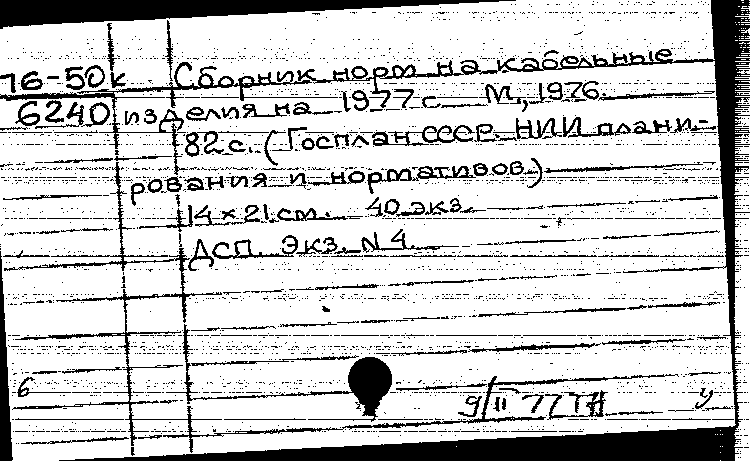 76-50к Сборник норм на кабельные
6240 изделия на 1977 г. М., 1976.
82 с. (Госплан СССР. НИИ плани-
рования и нормативов.)
14 × 21 см. 40 экз.
ДСП. Экз. N 4.
6
9/II 77 ТН у